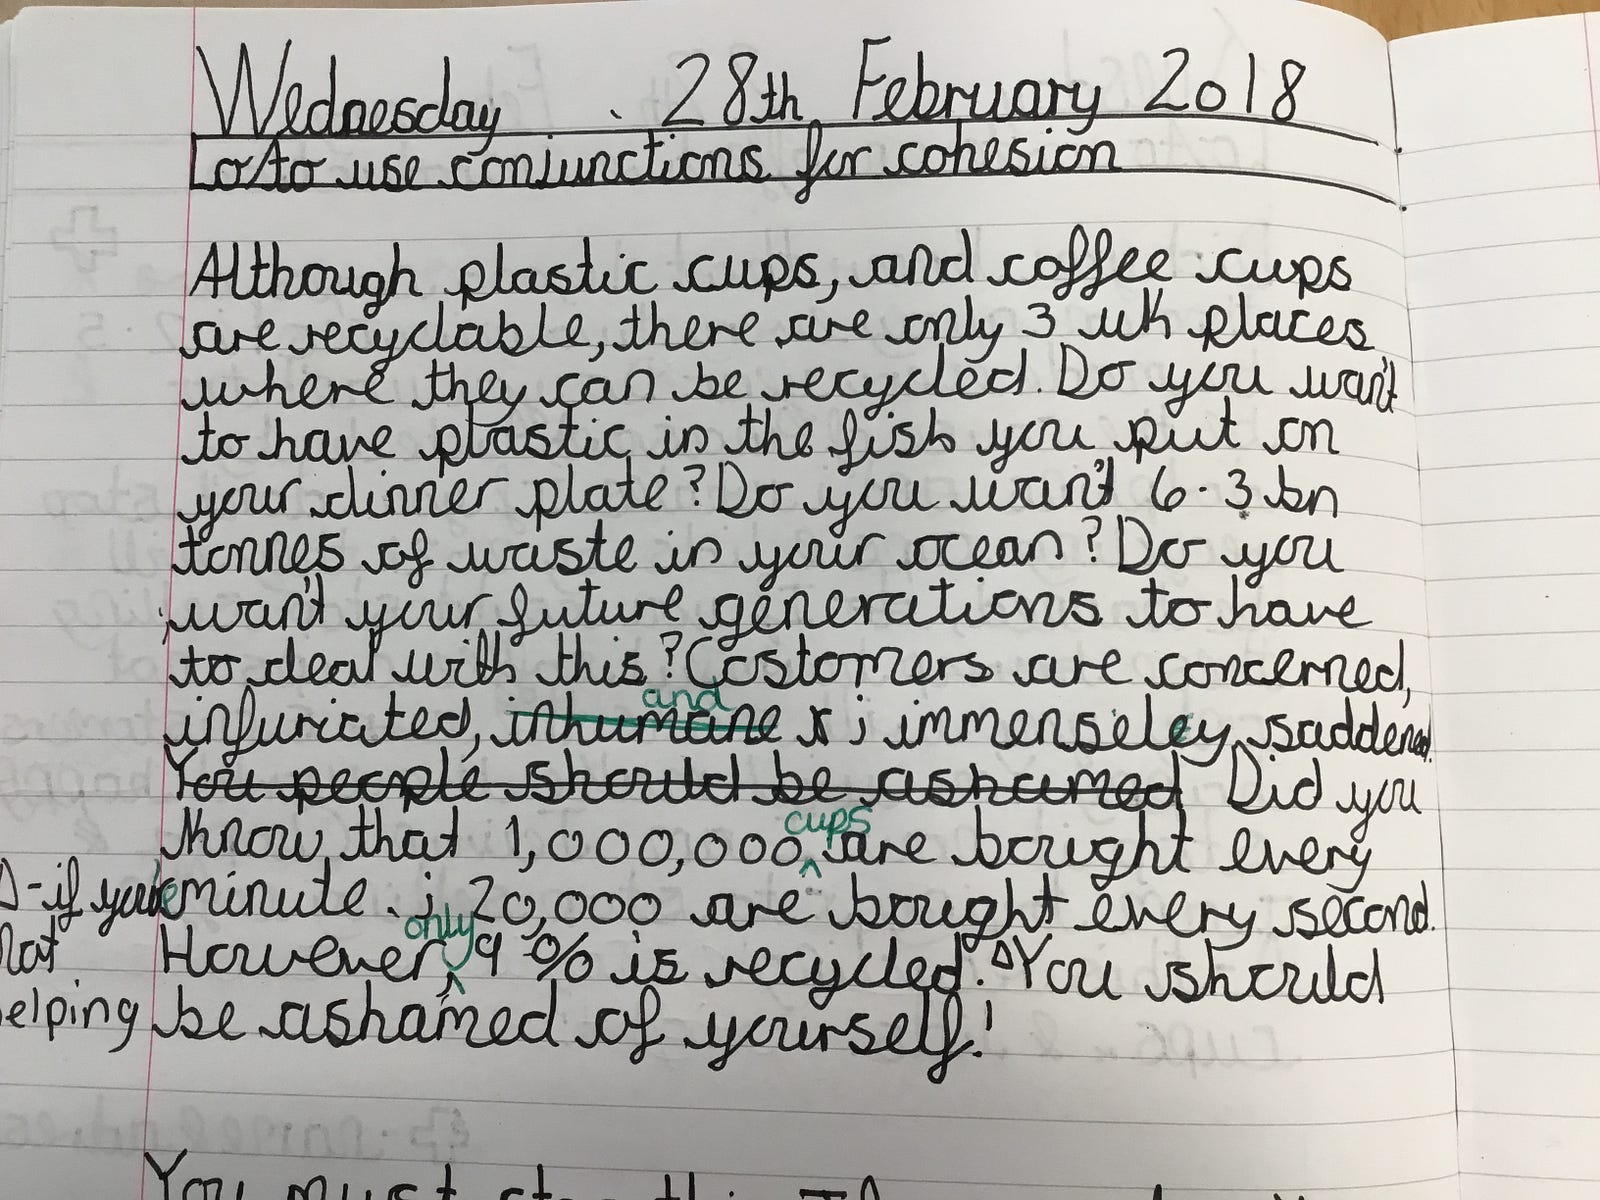 Wednesday . 28th February 2018
Lo/to use conjunctions for cohesion
Although plastic cups, and coffee cups
are recyclable, there are only 3 uk places
where they can be recycled. Do you wan't
to have plastic in the fish you put on
your dinner plate? Do you wan't 6.3 bn
tonnes of waste in your ocean? Do you
wan't your future generations to have
to deal with this? Costomers are concerned,
and
infuriated, inhumane x i immenseley saddened.
You people should be ashamed Did you
cups
know that 1,000,000 are bought every
∆-if you're minute. i 20,000 are bought every second.
only
not However, 9% is recycled. ∆You should
elping be ashamed of yourself!
You must